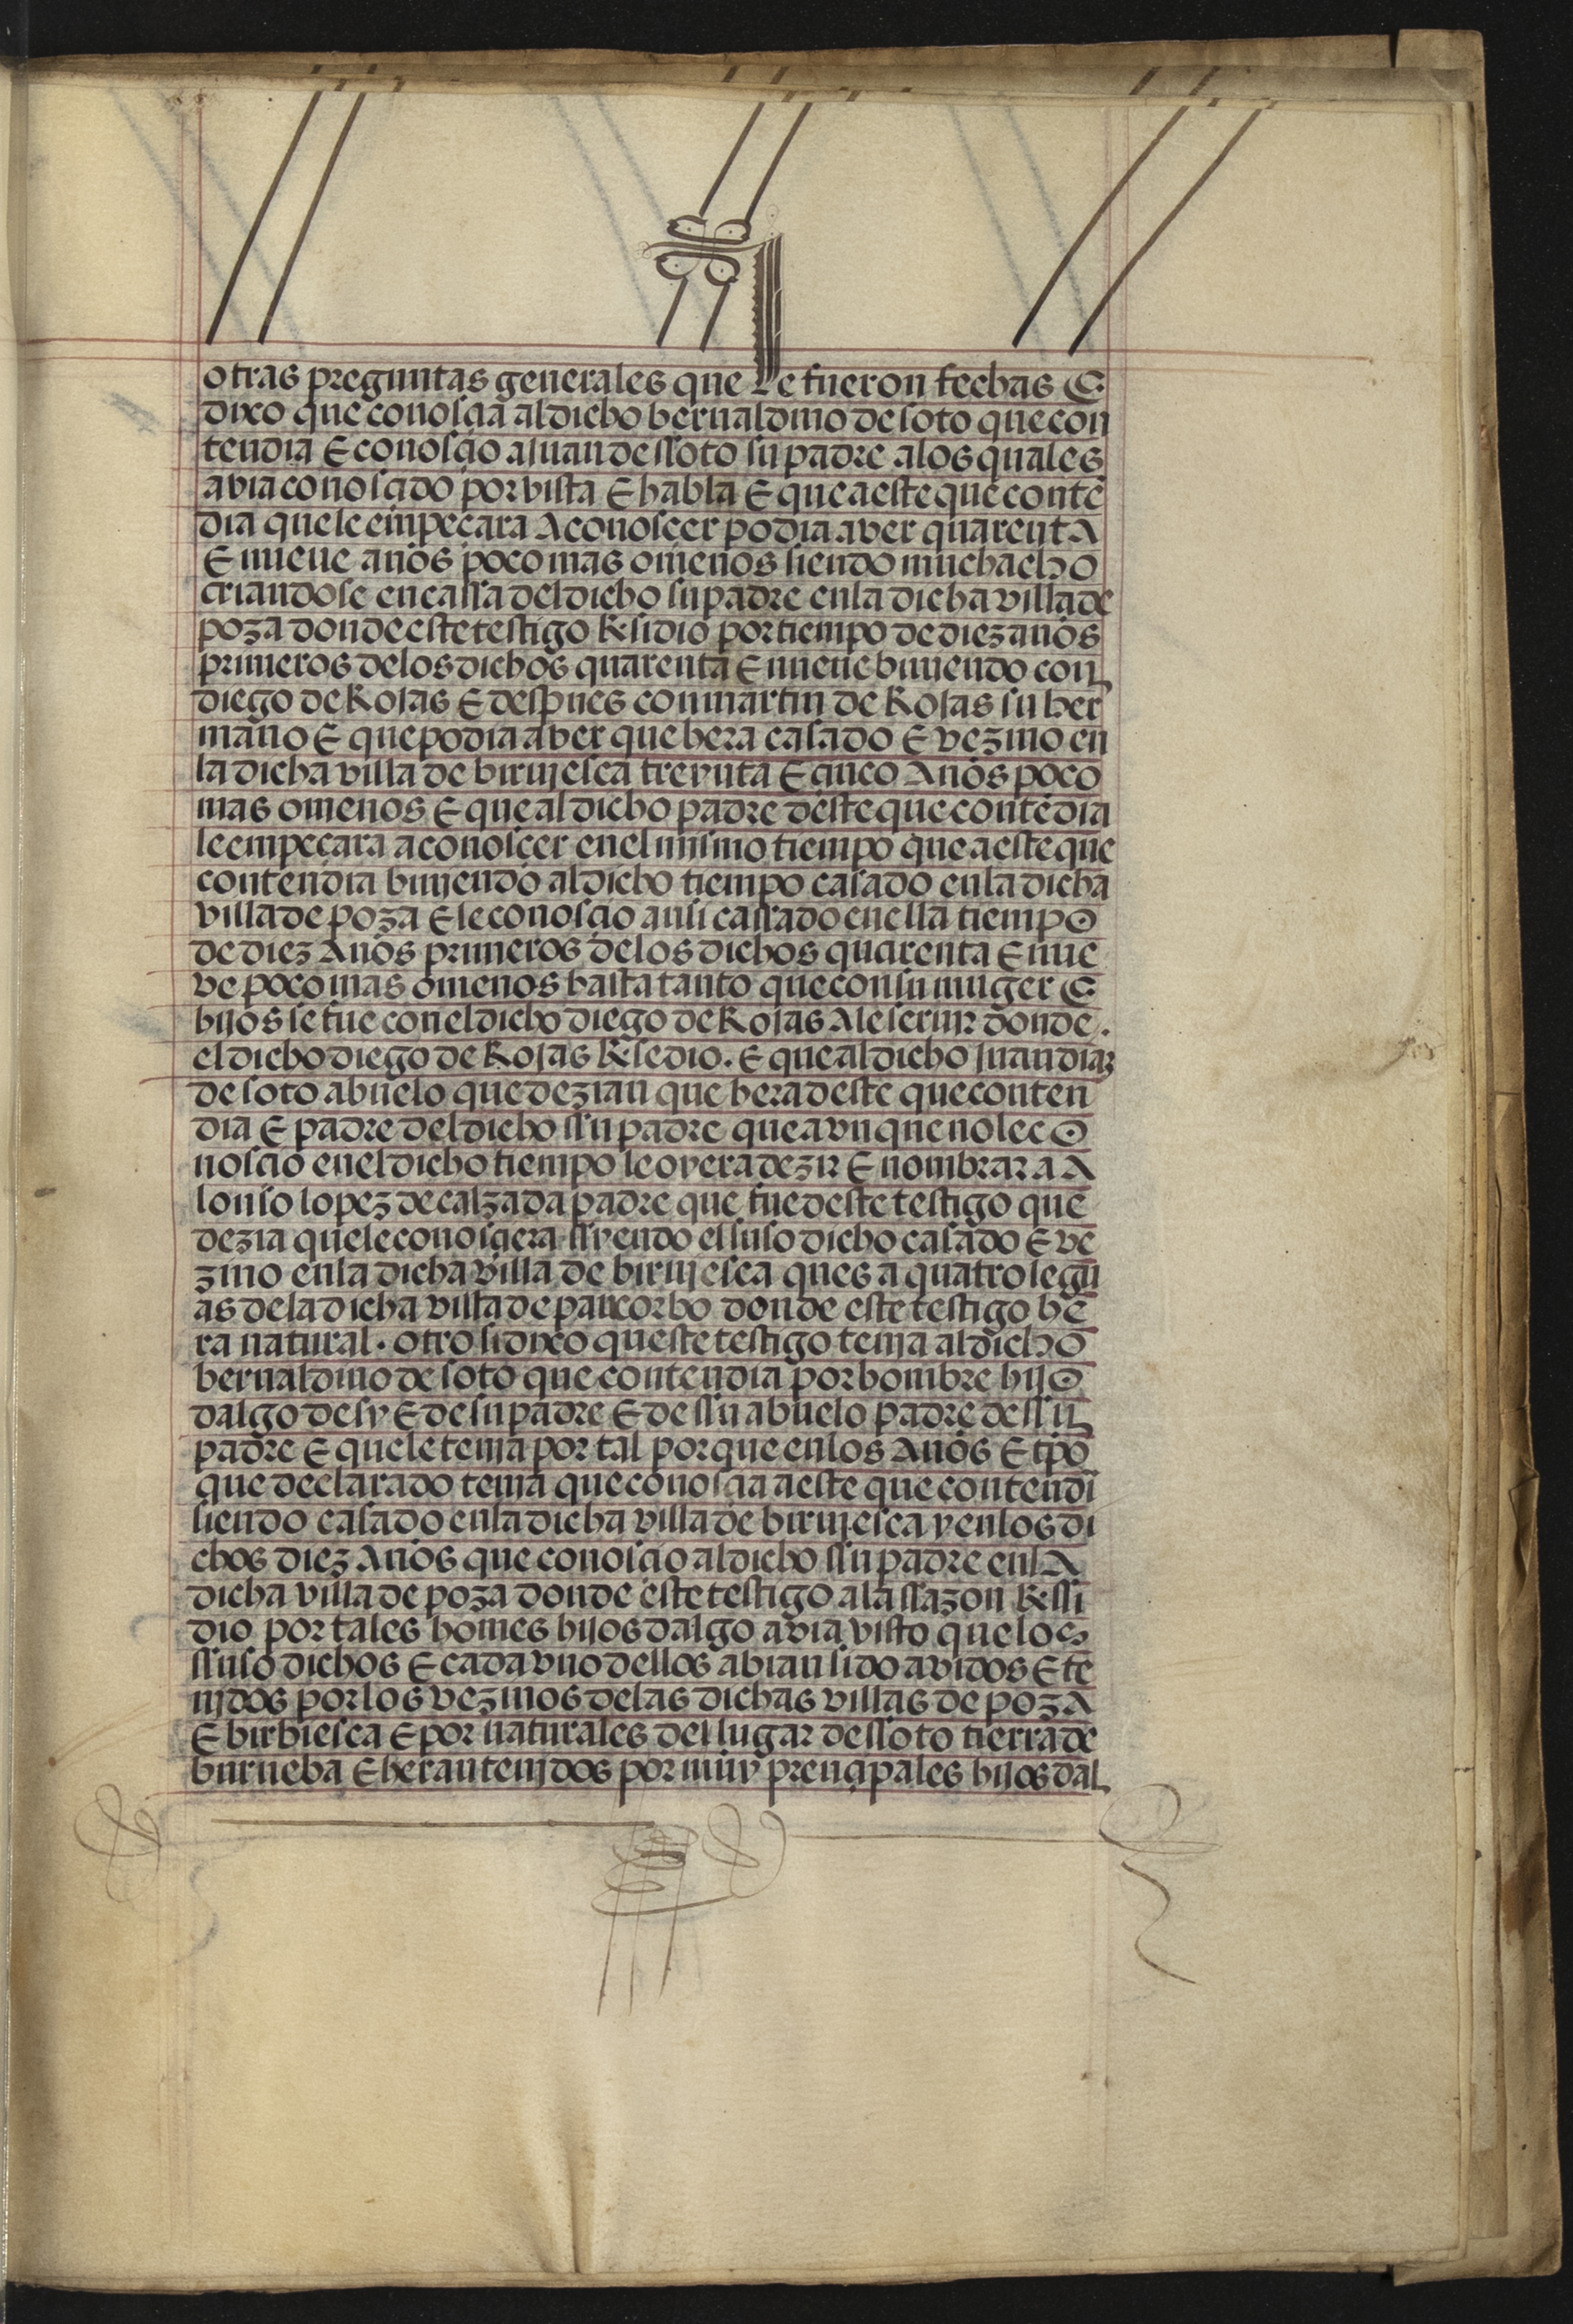 otras preguntas generales que le fueron fechas E
dixo que conoscia al dicho bernaldino de soto que con
tendia E conoscio a juan de ssoto su padre a los quales
avia conoscido por vista E habla E que a este que contē
dia que le empeçara A conoscer podia aver quarentA
E nueve años poco mas o menos siendo muchacho
criandose en cassa del dicho su padre en la dicha villa de
poza donde este testigo Residio por tiempo de diez años
primeros de los dichos quarenta E nueue biuiendo con
diego de Rojas E despues con martin de Rojas su her
mano E que podia aver que hera casado E vezino en
la dicha villa de birujesca treynta E çinco Años poco
mas o menos E que al dicho padre deste que contēdia
le empeçara a conosçer en el mjsmo tiempo que a este que
contendia biujendo al dicho tiempo casado en la dicha
villa de poza E le conoscio ansi cassado en ella tiempo
de diez Años primeros de los dichos quarenta E nue
ve poco mas o menos hasta tanto que con su muger E
hijos se fue con el dicho diego de Rojas A le serujr donde.
el dicho diego de Rojas Resedio. E que al dicho juan diaz
de soto abuelo que dezian que hera deste que conten
dia E padre del dicho ssu padre que avnque no le co
noscio en el dicho tiempo le oyera dezir E nombrar a A
lonso lopez de calzada padre que fue deste testigo que
dezia que le conosçiera ssyendo el suso dicho casado E ve
zino en la dicha villa de birujesca ques a quatro legu
as de la dicha villa de pancorbo donde este testigo he
ra natural. otro si dixo queste testigo tenja al dicho
bernaldino de soto que contendia por hombre hijo
dalgo de sy E de su padre E de ssu abuelo padre de ssu
padre E que le tenja por tal porque en los Años E tpō
que declarado tenia que conoscia a este que contendi
siendo casado en la dicha villa de birujesca y en los di
chos diez Años que conoscio al dicho ssu padre en lA
dicha villa de poza donde este testigo a la ssazon Ressi
dio por tales homes hijos dalgo avia visto que los
ssuso dichos E cada vno dellos abian sido avidos E te
njdos por los vezinos de las dichas villas de pozA
E birbiesca E por naturales del lugar de ssoto tierra de
burueba E heran tenjdos por muy prençipales hijos dal